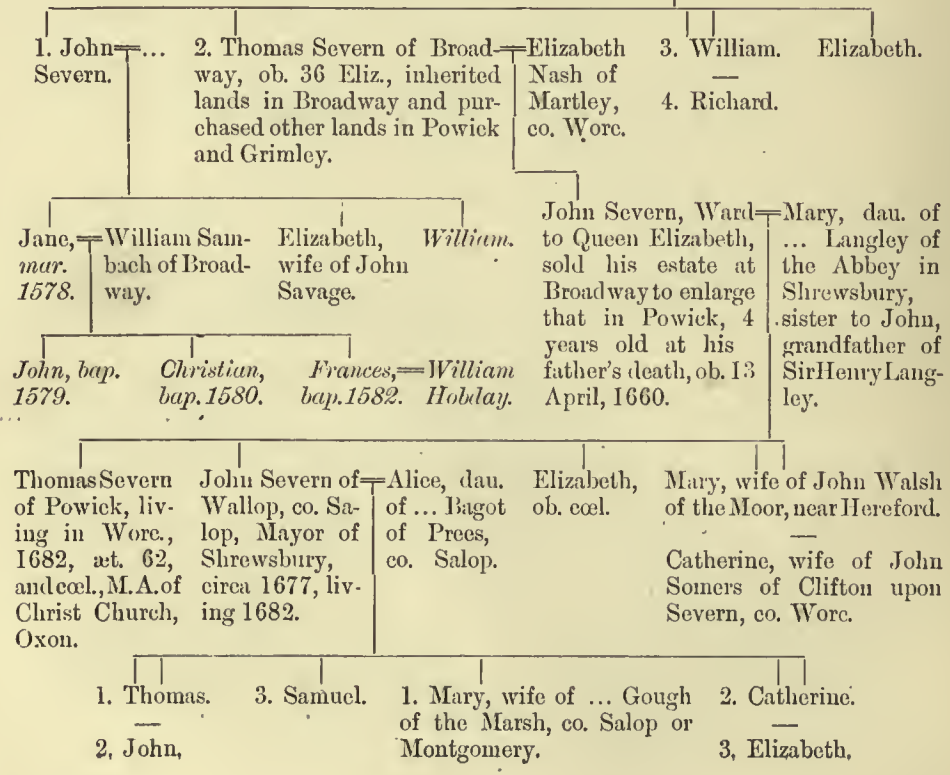 1. John ═ ...
Severn.
2. Thomas Severn of Broad-
way, ob. 36 Eliz., inherited
lands in Broadway and pur-
chased other lands in Powick
and Grimley.
Elizabeth
Nash of
Martley,
co. Worc.
3. William.
—
4. Richard.
Elizabeth.
Jane,
mar.
1578.
William Sam-
bach of Broad-
way.
Elizabeth,
wife of John
Savage.
William.
John Severn, Ward
to Queen Elizabeth,
sold his estate at
Broadway to enlarge
that in Powick, 4
years old at his
father's death, ob. 13
April, 1660.
Mary, dau. of
... Langley of
the Abbey in
Shrewsbury,
sister to John,
grandfather of
Sir Henry Lang-
ley.
John, bap.
1579.
Christian,
bap. 1580.
Frances,
bap. 1582.
William
Hobday.
Thomas Severn
of Powick, liv-
ing in Worc.,
1682, æt. 62,
and cœl., M.A. of
Christ Church,
Oxon.
John Severn of
Wallop, co. Sa-
lop, Mayor of
Shrewsbury,
circa 1677, liv-
ing 1682.
Alice, dau.
of ... Bagot
of Prees,
co. Salop.
Elizabeth,
ob. cœl.
Mary, wife of John Walsh
of the Moor, near Hereford.
—
Catherine, wife of John
Somers of Clifton upon
Severn, co. Worc.
1. Thomas.
—
2, John,
3. Samuel.
1. Mary, wife of ... Gough
of the Marsh, co. Salop or
Montgomery.
2. Catherine.
—
3, Elizabeth,